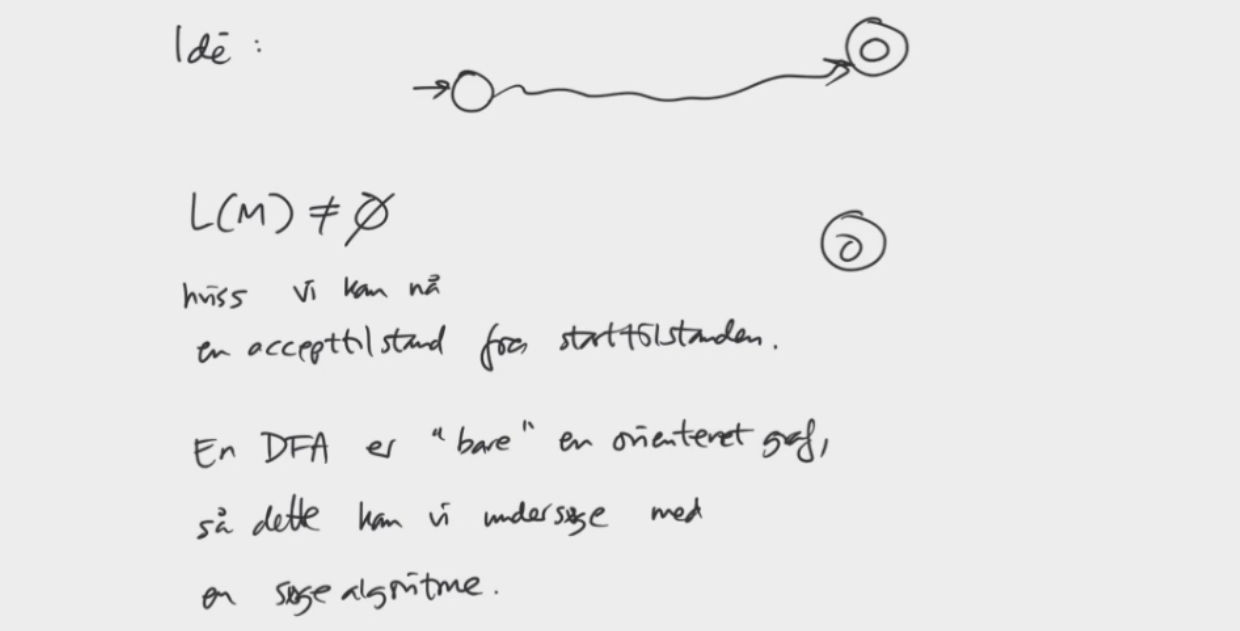 Idé :
L(M) ≠ ∅
hviss vi kan nå
en accepttilstand fra starttilstanden.
En DFA er "bare" en orienteret graf,
så dette kan vi undersøge med
en søgealgoritme.